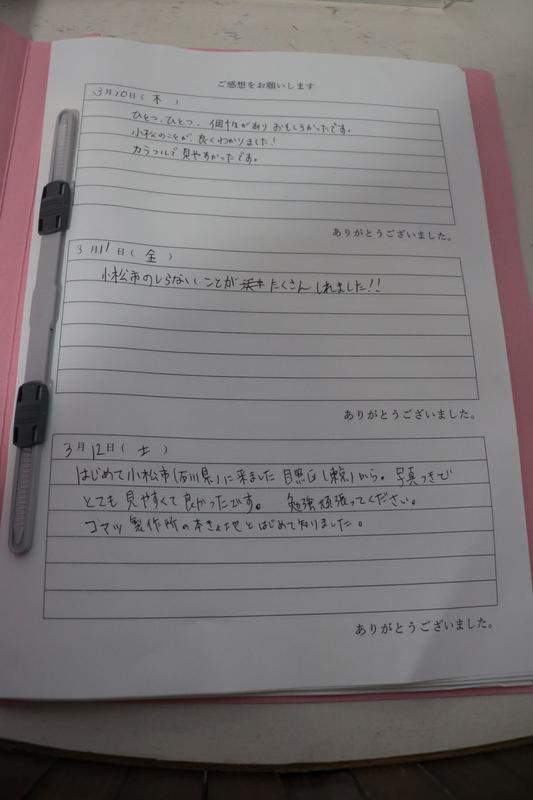 ご感想をお願いします
3月10日(木)
ひとつ、ひとつ、個性がありおもしろかったです。
小松のことが、良くわかりました!
カラフルで見やすかったです。
ありがとうございました。
3月11日(金)
小松市のしらないことが たくさん しれました!!
ありがとうございました。
3月12日(土)
はじめて小松市(石川県)に来ました 目黒区(東京)から。写真つきで
とても見やすくて良かったです。 勉強頑張ってください。
コマツ製作所の本きょ地とはじめて知りました。
ありがとうございました。